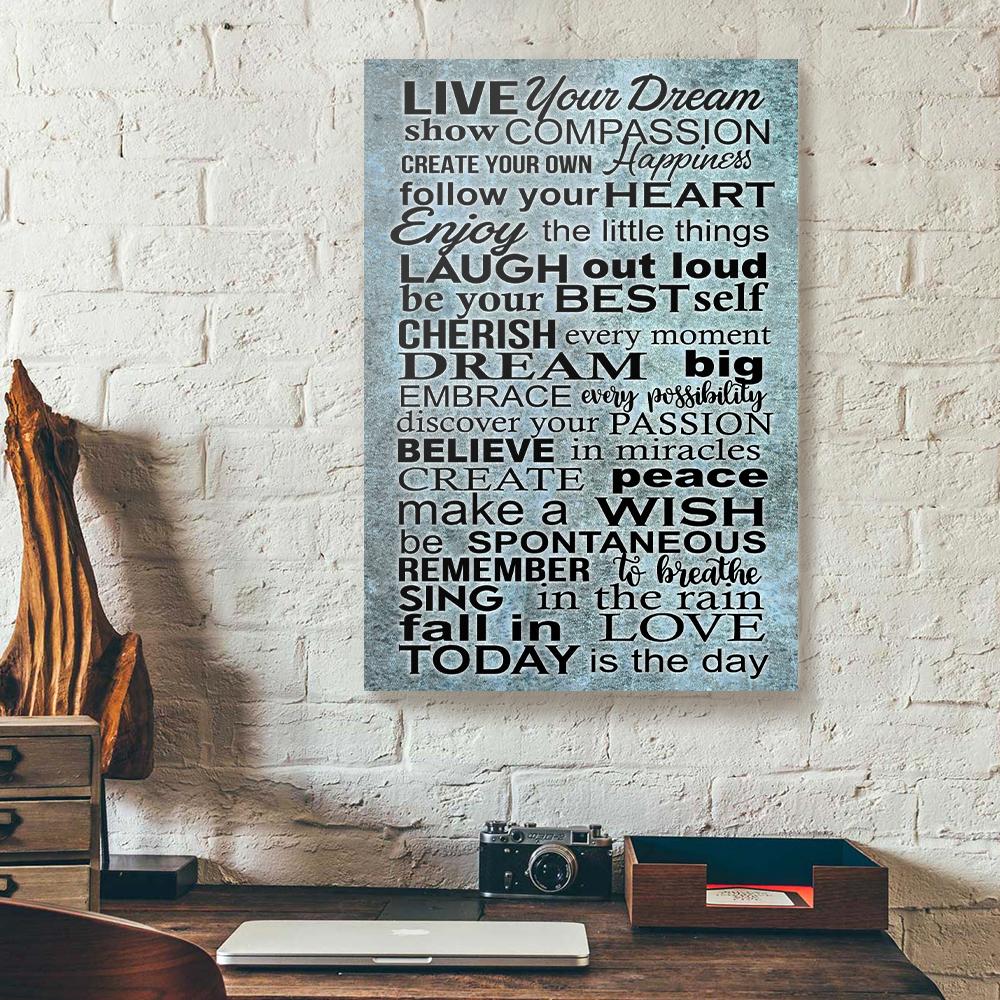 LIVE Your Dream
show COMPASSION
CREATE YOUR OWN Happiness
follow your HEART
Enjoy the little things
LAUGH out loud
be your BEST self
CHERISH every moment
DREAM big
EMBRACE every possibility
discover your PASSION
BELIEVE in miracles
CREATE peace
make a WISH
be SPONTANEOUS
REMEMBER to breathe
SING in the rain
fall in LOVE
TODAY is the day